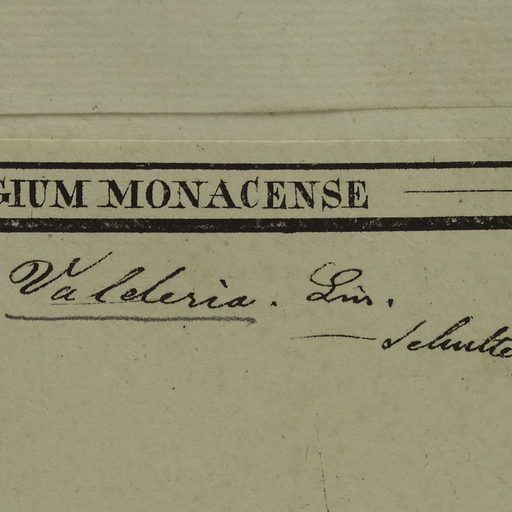 GIUM MONACENSE
Valderia. Lin.
— Schulte